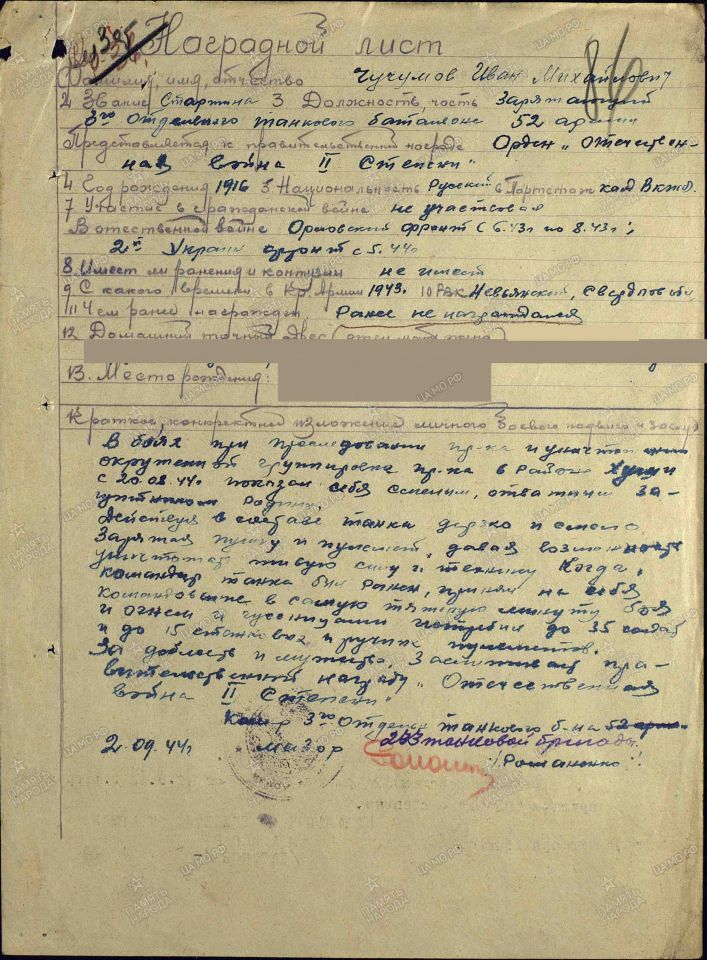 Наградной лист
86
Фамилия, имя, отчество Чучумов Иван Михайлович
2 Звание Старшина 3 Должность, часть Заряжающий
3го Отдельного танкового баталиона 52 армии
Представляется к правительственной награде Орден „Отечествен-
ная война II Степени"
4 Год рождения 1916 5 Национальность Русский 6 Партстаж канд ВКПб.
7 Участие в гражданской войне не участвовал
В отечественной войне Орловский фронт с 6.43г по 8.43г.,
2й Украин фронт с 5.44г
8. Имеет ли ранения и контузии не имеет
9 С какого времени в Кр. Армии 1943г. 10 РВК Невьянский, Свердлов обл.
11 Чем ранее награжден Ранее не награждался
12 Домашний точный адрес
13. Место рождения:
Краткое, конкретное изложение личного боевого подвига и заслуг
В боях при преследовании пр-ка и уничтож
окруженной группировки пр-ка в районе Хуши
с 20.08.44г. показал себя смелым, отважным за-
щитником Родины.
Действуя в составе танка дерзко и смело
Заряжая пушку и пулемет, давая возможность
уничтожать живую силу и технику. Когда,
командир танка был ранен, принял на себя
командование в самую тяжелую минуту боя
и огнем и гусеницами истребил до 35 солдат
и до 15 станковых и ручных пулеметов.
За доблесть и мужество, Заслуживает пра-
вительственной награды „Отечественная
война II Степени"
Ком-р 3го Отдельн танкового б-на 52 арм.
233 танковой бригады
2.09.44г майор /Романенко/